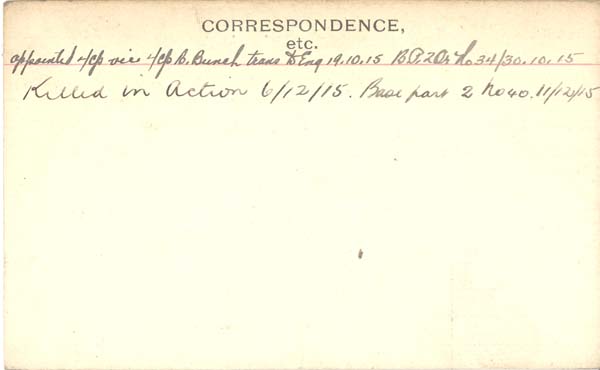 CORRESPONDENCE,
etc.
appointed L/Cp vice L/Cp B. Bunch trans to Eng 19.10.15 B.P.2 Or No 34/30.10.15
Killed in Action 6/12/15. Base part 2 No 40. 11/12/15